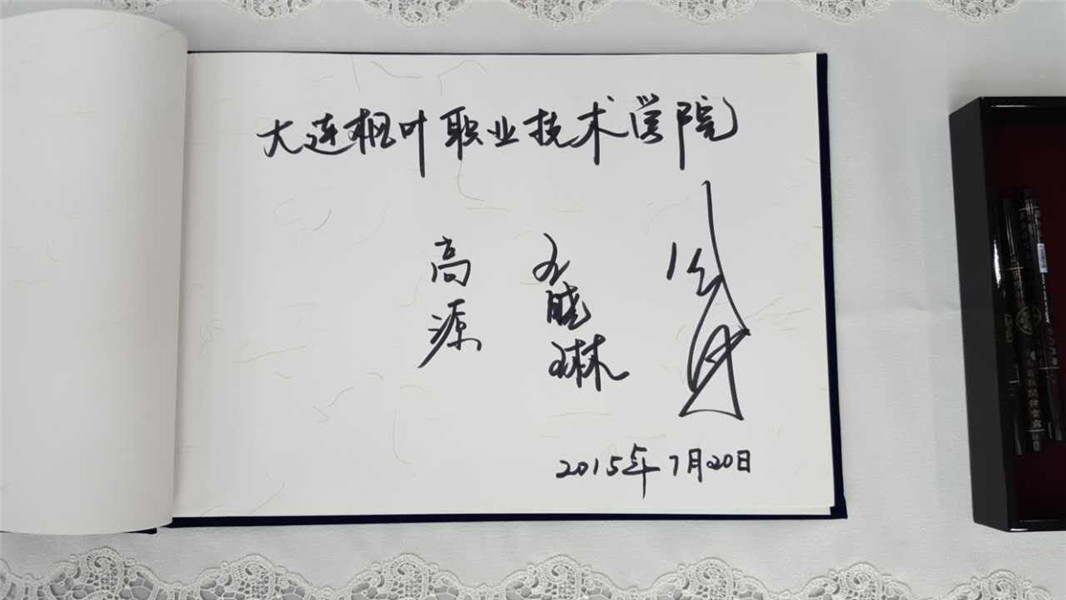 大连枫叶职业技术学院
高源
王晓琳
2015年7月20日